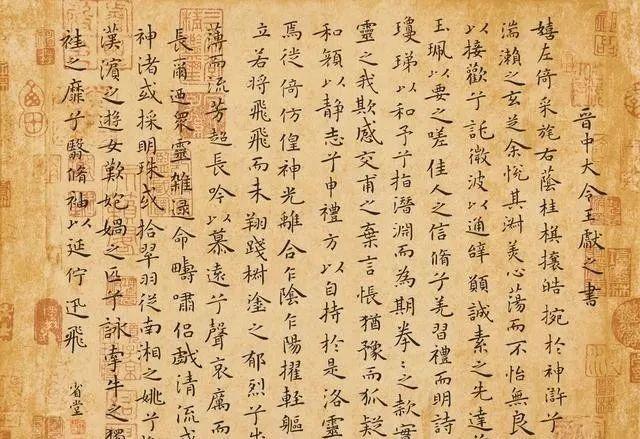 晉中大令王獻之書
嬉左倚采旄右蔭桂棋攘皓捥於神滸兮
湍瀨之玄芝余悅其淑美心蕩而不怡無良
以接歡兮託微波以通辭願誠素之先達
玉珮以要之嗟佳人之信脩兮羌習禮而明詩
瓊珶以和予兮指潛淵而為期拳〻之款實
靈之我欺感交甫之棄言悵猶豫而狐疑
和顏以静志兮申禮方以自持於是洛靈
焉徙倚仿偟神光離合乍陰乍陽擢輕軀
立若將飛飛而未翔踐椒塗之郁烈兮
薄而流芳超長吟以慕遠兮聲哀厲而
長爾迺眾靈雜遝命疇嘯侶戲清流或
神渚或採明珠或拾翠羽從南湘之姚兮
漢濱之遊女歎匏媧之匹兮詠牽牛之獨
袿之靡兮翳脩袖以延佇迅飛
省堂